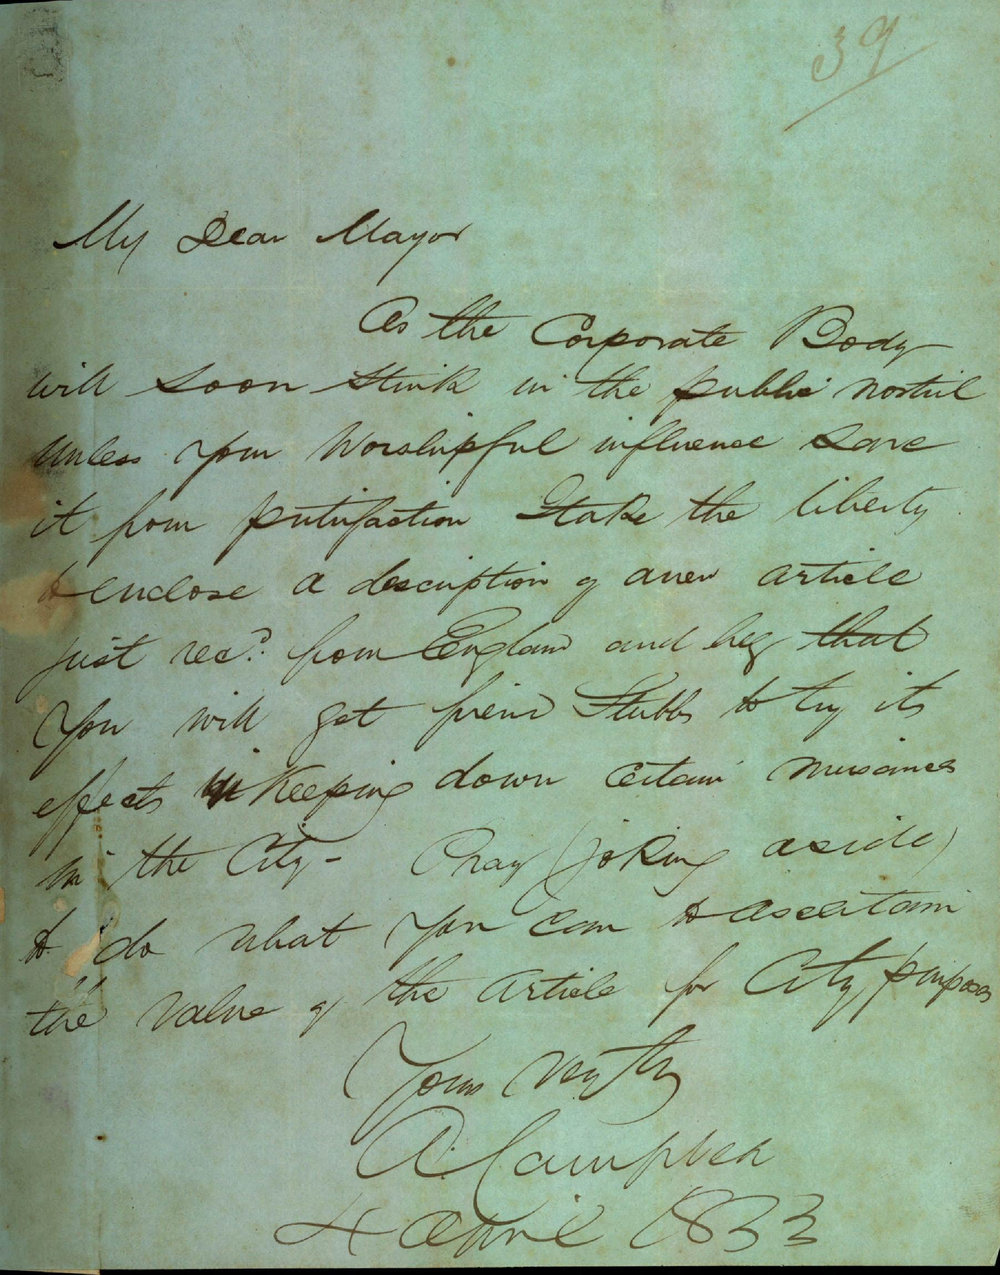 39
My Dear Mayor
As the Corporate Body
will soon stink in the public nostril
unless your Worshipful influence save
it from putrifaction I take the liberty
to enclose a description of a new article
just recd. from England and beg that
you will get friend Stubbs to try its
effects in Keeping down certain nuisances
in the City - Pray (joking aside)
to do what you can to ascertain
the value of the article for City purposes
Yours very try
A. Campbell
4 April 1833